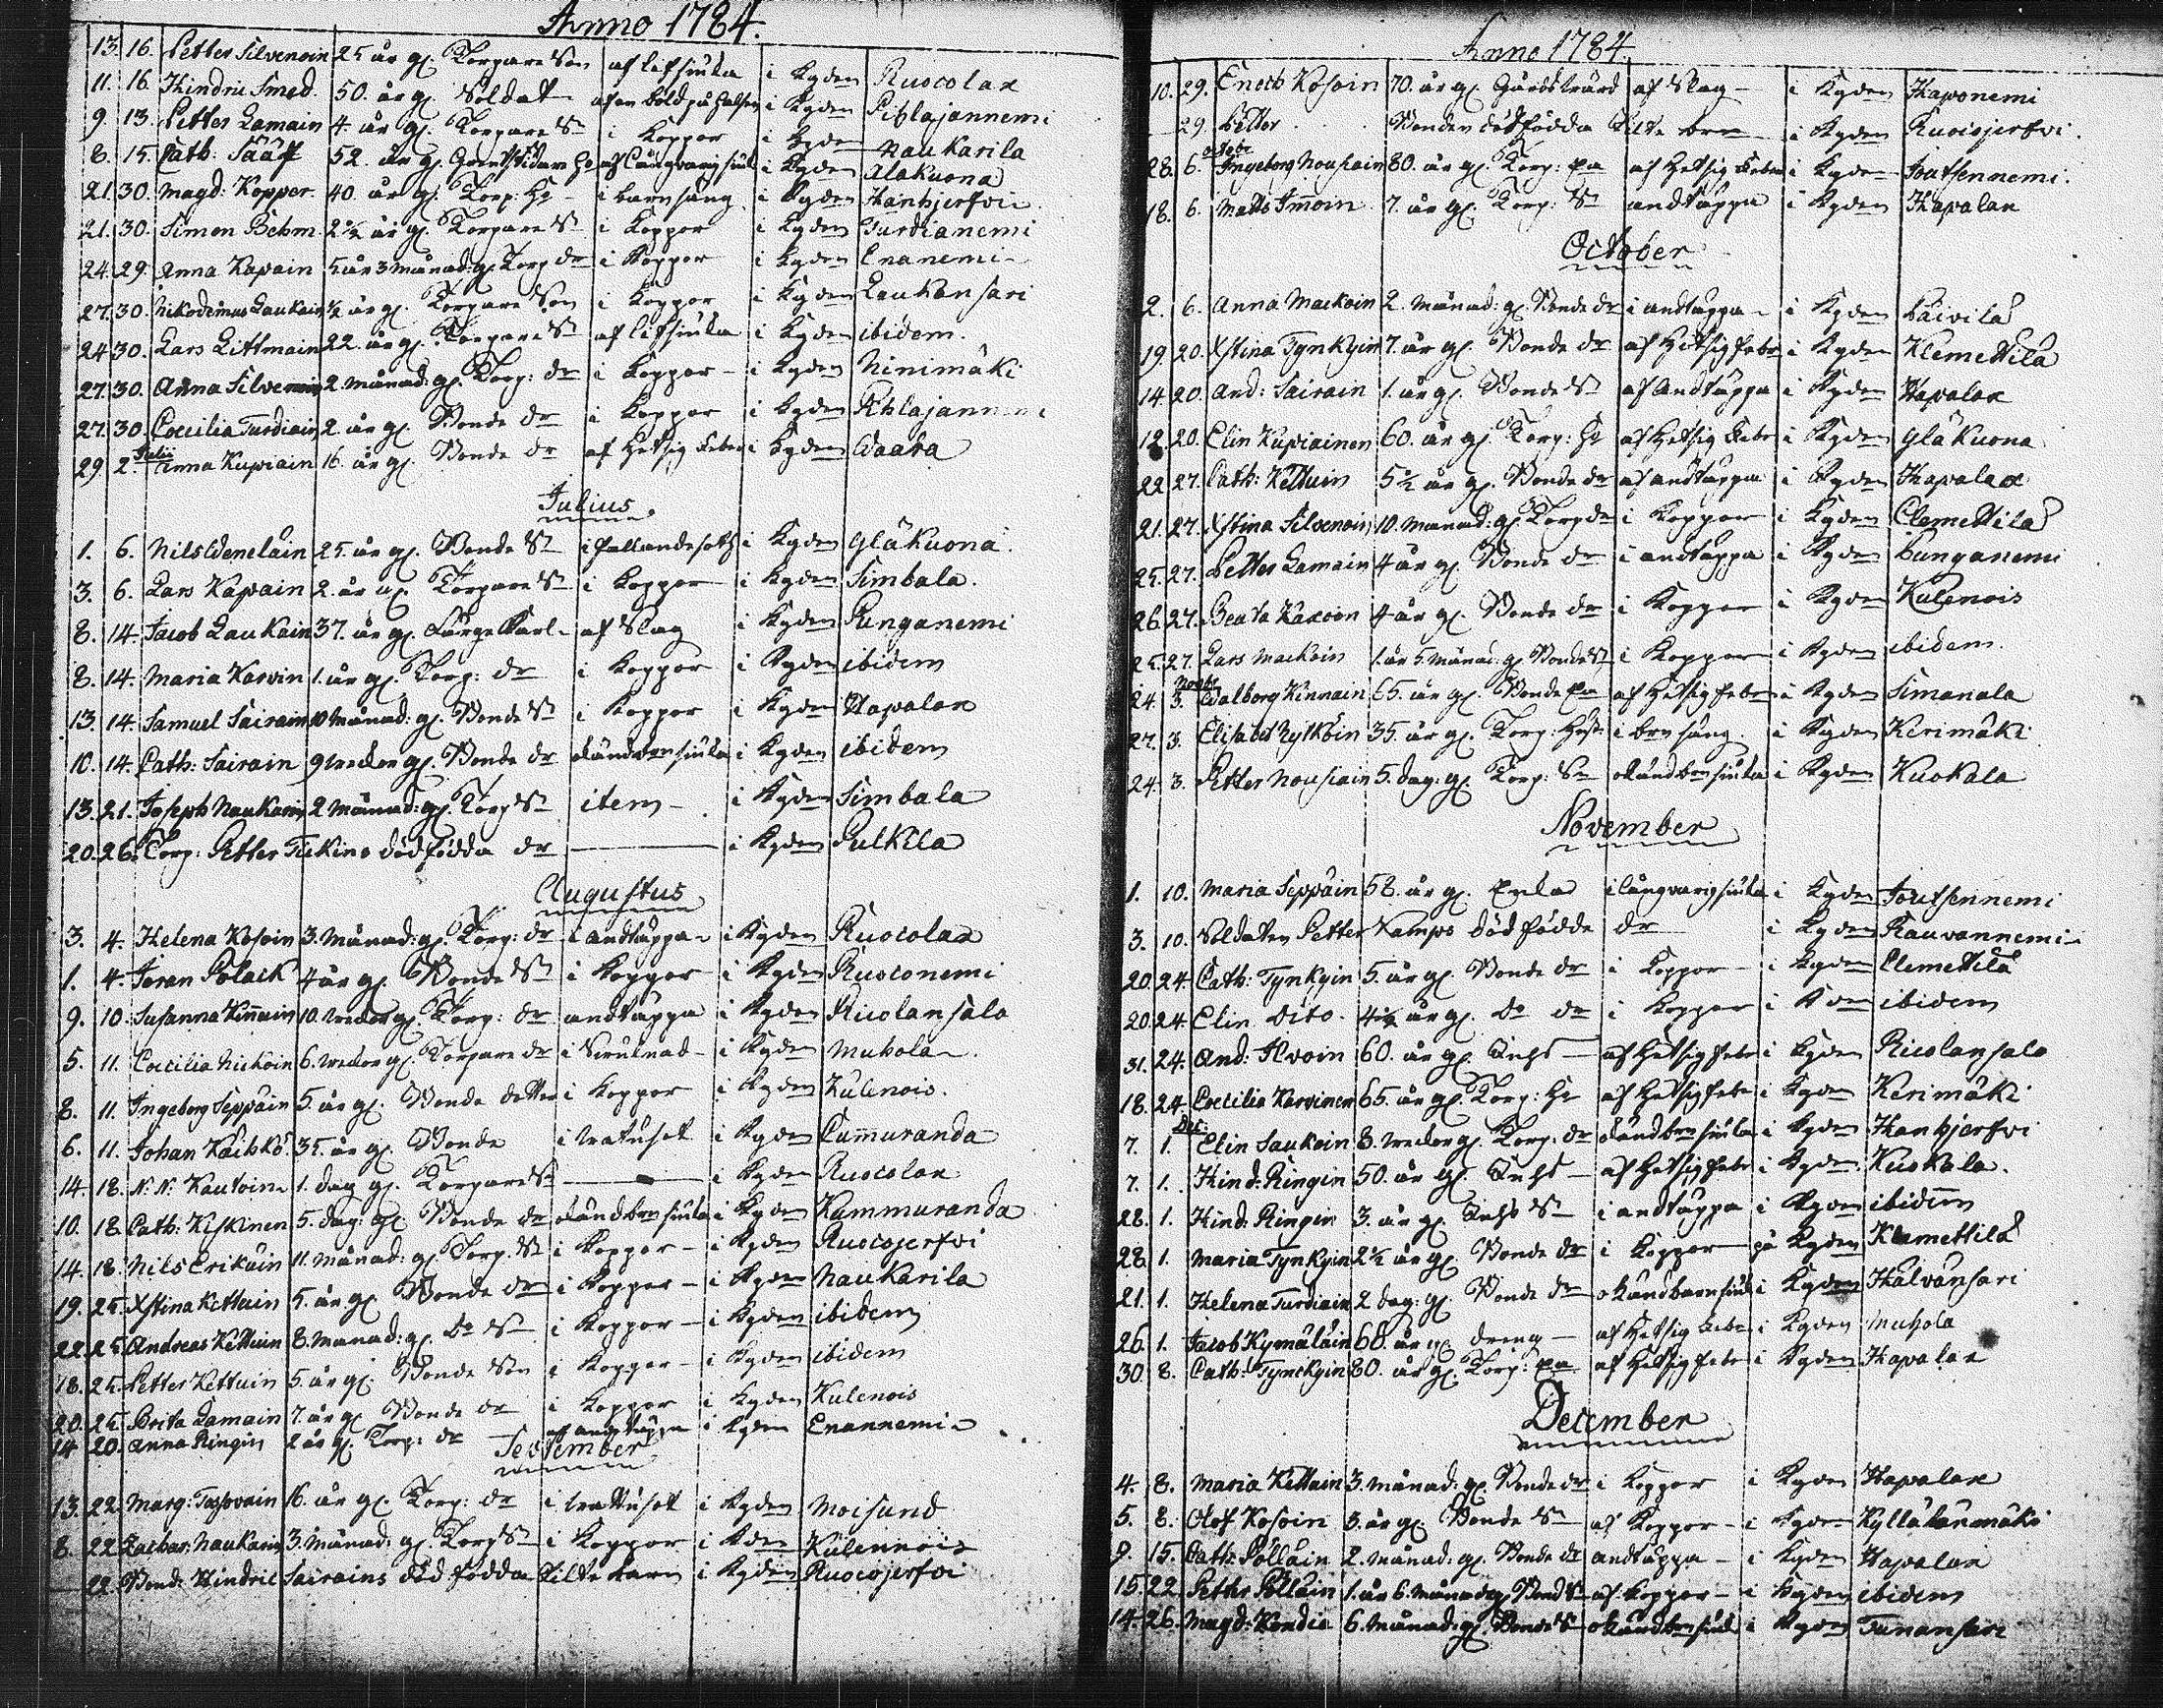 Anno 1784.
13. 16. Petter Silvenoin 25 år gl. Torpare Son af lefsiuka i Kyden Ruocolax
11. 16. Hindric Smed. 50. år gl. Soldat af en böld på halsen i Kyden Pihlajannemi
9. 13. Petter Lamain 4 år gl. Torpare Sn i Koppor i Kyden Naukarila
8. 15. Cath: Sääf 52. år gl. af Långvarig siuk i Kyden Alakuona
21. 30. Magd: Kopper. 40 år gl. Torp: Hu i barnsäng i Kyden Hanhjerfvi
21. 30. Simon Böhm. 2½ år gl. Torpare Sn i Koppor i Kyden Turdianemi
24. 29. Anna Kapain 5 år 3 månad: gl. Torp dr i Koppor i Kyden Enanemi
27. 30. Nikodemus Laukain ½ år gl. Torpare Son i Koppor i Kyden Laukansari
24 30. Lars Littmain 22. år gl. Torpare Sn af lefsiuka i Kyden ibidem.
27. 30 Anna Silvenoin 2. månad: gl. Torp: dr i Koppor i Kyden Ninimäki
27. 30. Coecilia Turdiain 2. år gl. Bonde dr i Koppor i Kyden Pihlajannemi
29. 2. Julii Anna Kupiain 16. år gl. Bonde dr af Hetsig Feber i Kyden Waara
Julius.
1. 6. Nils Wenelain 25. år gl. Bonde Sn i fallandesoth i Kyden Yläkuona.
3. 6. Lars Kapain 2. år gl. Torpare Sn i Koppor i Kyden Simbala.
8. 14. Jacob Laukain 37. år gl. Färge Karl af Slag i Kyden Punganemi
8. 14. Maria Karvin 1. år gl. Torp: dr i Koppor i Kyden ibidem
13. 14. Samuel Sairain 10 månad: gl. Bonde Sn i Koppor i Kyden Hapalax
10. 14. Cath: Sairain 9 wekor gl. Bonde dr okänd brn siuka i Kyden ibidem
13. 21. Joseph Naukarin 2 månad: gl. Torp Sn item i Kyden Simbala
20. 26. Torp: Petter Tickins dödfödda dr i Kyden Pulkila
Augustus
3. 4. Helena Kosoin 3. månad: gl. Torp: dr i andtäppa i Kyden Ruocolax
1. 4. Joran Polack 4 år gl. Bonde Sn i Koppor i Kyden Ruoconemi
9. 10. Susanna Kinnain 10. wekor gl. Torp: dr andtäppa i Kyden Ricolansalo
5. 11. Coecilia Nickoin 6. wekor gl. Torpare dr i Kyden Muhola
8. 11. Ingeborg Seppäin 5. år gl. Bonde dotter i Koppor i Kyden Kulenois.
6. 11. Johan Käihkö. 35. år gl. Bonde i Kyden Cummuranda
14. 18. N: N: Kautoin 1. dag gl. Torpare Sn i Kyden Ruocolax
10. 18. Cath: Kiskinen 5. dag: gl. Bonde dr okänd brn siuka i Kyden Kummuranda
14. 18. Nils Erikäin 11. månad: gl. Torp. Sn i Koppor i Kyden Ruocojerfvi
19. 25. Xstina Kettuin 5. år gl. Bonde dr i Koppor i Kyden Naukarila
22. 25. Andreas Kettuin 8. månad: gl. Do Sn i Koppor i Kyden ibidem
18. 25. Petter Kettuin 5. år gl. Bonde Son i Koppor i Kyden ibidem
20. 25. Brita Lamain 7. år gl. Bonde dr i Koppor i Kyden Kulenois
14 20. Anna Ringin 2 år gl. Torp: dr af andtäppa i Kyden Enannemi
September
13. 22. Marg: Taskvain 16. år gl. Torp: dr i Kyden Moisund
8. 22. Zachar: Naukarin 3. månad: gl. Torp Sn i Koppor i Kyden Kulennois
22. Bond: Hindric Sairains död födda Äckta barn i Kyden Ruocojerfvi
Anno 1784
10. 29. Enoch Kosoin 70. år gl. Gårdswärd af Slag i Kyden Haponemi
29. Petter Bonden död födda brn i Kyden Ruocojerfvi.
28. 6. octobr Ingeborg Nousiain 80. år gl. Torp: Enka af Hetsig Feber i Kyden Joutsennemi.
18. 6. Matts Immoin. 7. år gl. Torp: Sn andtäppa i Kyden Hapalax
October
2. 6. Anna Mackoin 2. månad: gl. Bonde dr i andtäppa i Kyden Päivilä
19. 20. Xstina Tynkyin 7. år gl. Bonde dr af Hetsig febr i Kyden Klemettilä
14. 20. And: Sairain 1. år gl. Bonde Sn af Andtäppa i Kyden Hapalax
18. 20. Elin Kupiainen 60. år gl. Torp: Hu af Hetsig Febr i Kyden Yläkuona
22. 27. Cath: Kettuin 5½ år gl. Bonde dr af andtäppa i Kyden Hapalax
21. 27. Xstina Silvenoin 10. månad: gl. Torp dr i Koppor i Kyden Clemettilä
25. 27. Petter Lamain 4 år gl. Bonde dr i andtäppa i Kyden Punganemi
26. 27. Beata Karvin 4 år gl. Bonde dr i Koppor i Kyden Kulenois
25. 27. Lars Mackoin 1. år 5. månad: gl. Bonde Sn i Koppor i Kyden ibidem.
24 3. Novbr Walborg Kinnain 65. år gl. Bonde Enka af Hetsig febr i Kyden Simanala
27. 3. Elisabet Rytköin 35. år gl. Torp: Hust i brn säng. i Kyden Kerimäki
24. 3. Petter Nousiain 5. dag: gl. Torp: Sn okänd brn siuka i Kyden Kuokala
November
1. 10. Maria Seppäin 58. år gl. Enka i långvarig siuka i Kyden Joutsennemi
3. 10. Soldaten Petter Kamps död födde dr i Kyden Rauvannemi
20. 24. Cath: Tynkyin 5. år gl. Bonde dr i Koppor i Kyden Clemettilä
20. 24. Elin Dito. 4½ år gl. Do dr i Koppor i Kyden ibidem
31. 24. And: Ilvoin 60. år gl. Inhs af Hetsig febr i Kyden Ricolansalo
18. 24. Coecilia Karvinen 65. år gl. Torp: Hu af Hetsig febr i Kyden Kerimäki
7. 1. Dec: Elin Laukain 8. wekor gl. Torp: dr okänd brn siuka i Kyden Hanhjerfvi
7. 1. Hind: Ringin 50. år gl. Inhs af Hetsig febr i Kyden Kuokala.
28. 1. Hind: Ringin 3. år gl. Inhs Sn i andtäppa i Kyden ibidem
28. 1. Maria Tynkyin 2½ år gl. Bonde dr i Koppor på Kyden Klemettilä
21. 1. Helena Turdiain 2 dag: gl. Bonde dr okänd barnsiuk i Kyden Hälvänsari
26. 1. Jacob Kymäläin 68. år gl. dreng af Hetsig Febr i Kyden Muhola
30. 8. Cath: Tynckyin 80. år gl. Torp: Enka af Hetsig febr i Kyden Hapalax
December
4. 8. Maria Kettuin 3. månad: gl. Bonde dr i Koppor i Kyden Hapalax
5. 8. Olof Kosoin 3. år gl. Bonde Sn af Koppor i Kyden Kyllälänmäki
9. 15. Cath: Pölläin 2. månad: gl. Bonde dr andtäppa i Kyden Hapalax
15. 22. Petter Pölläin 1. år 6. månad gl. Bonde Sn af Koppor i Kyden ibidem
14. 26. Magd: Kondia 6. månad: gl. Bonde okänd brn siuk i Kyden Tunansari